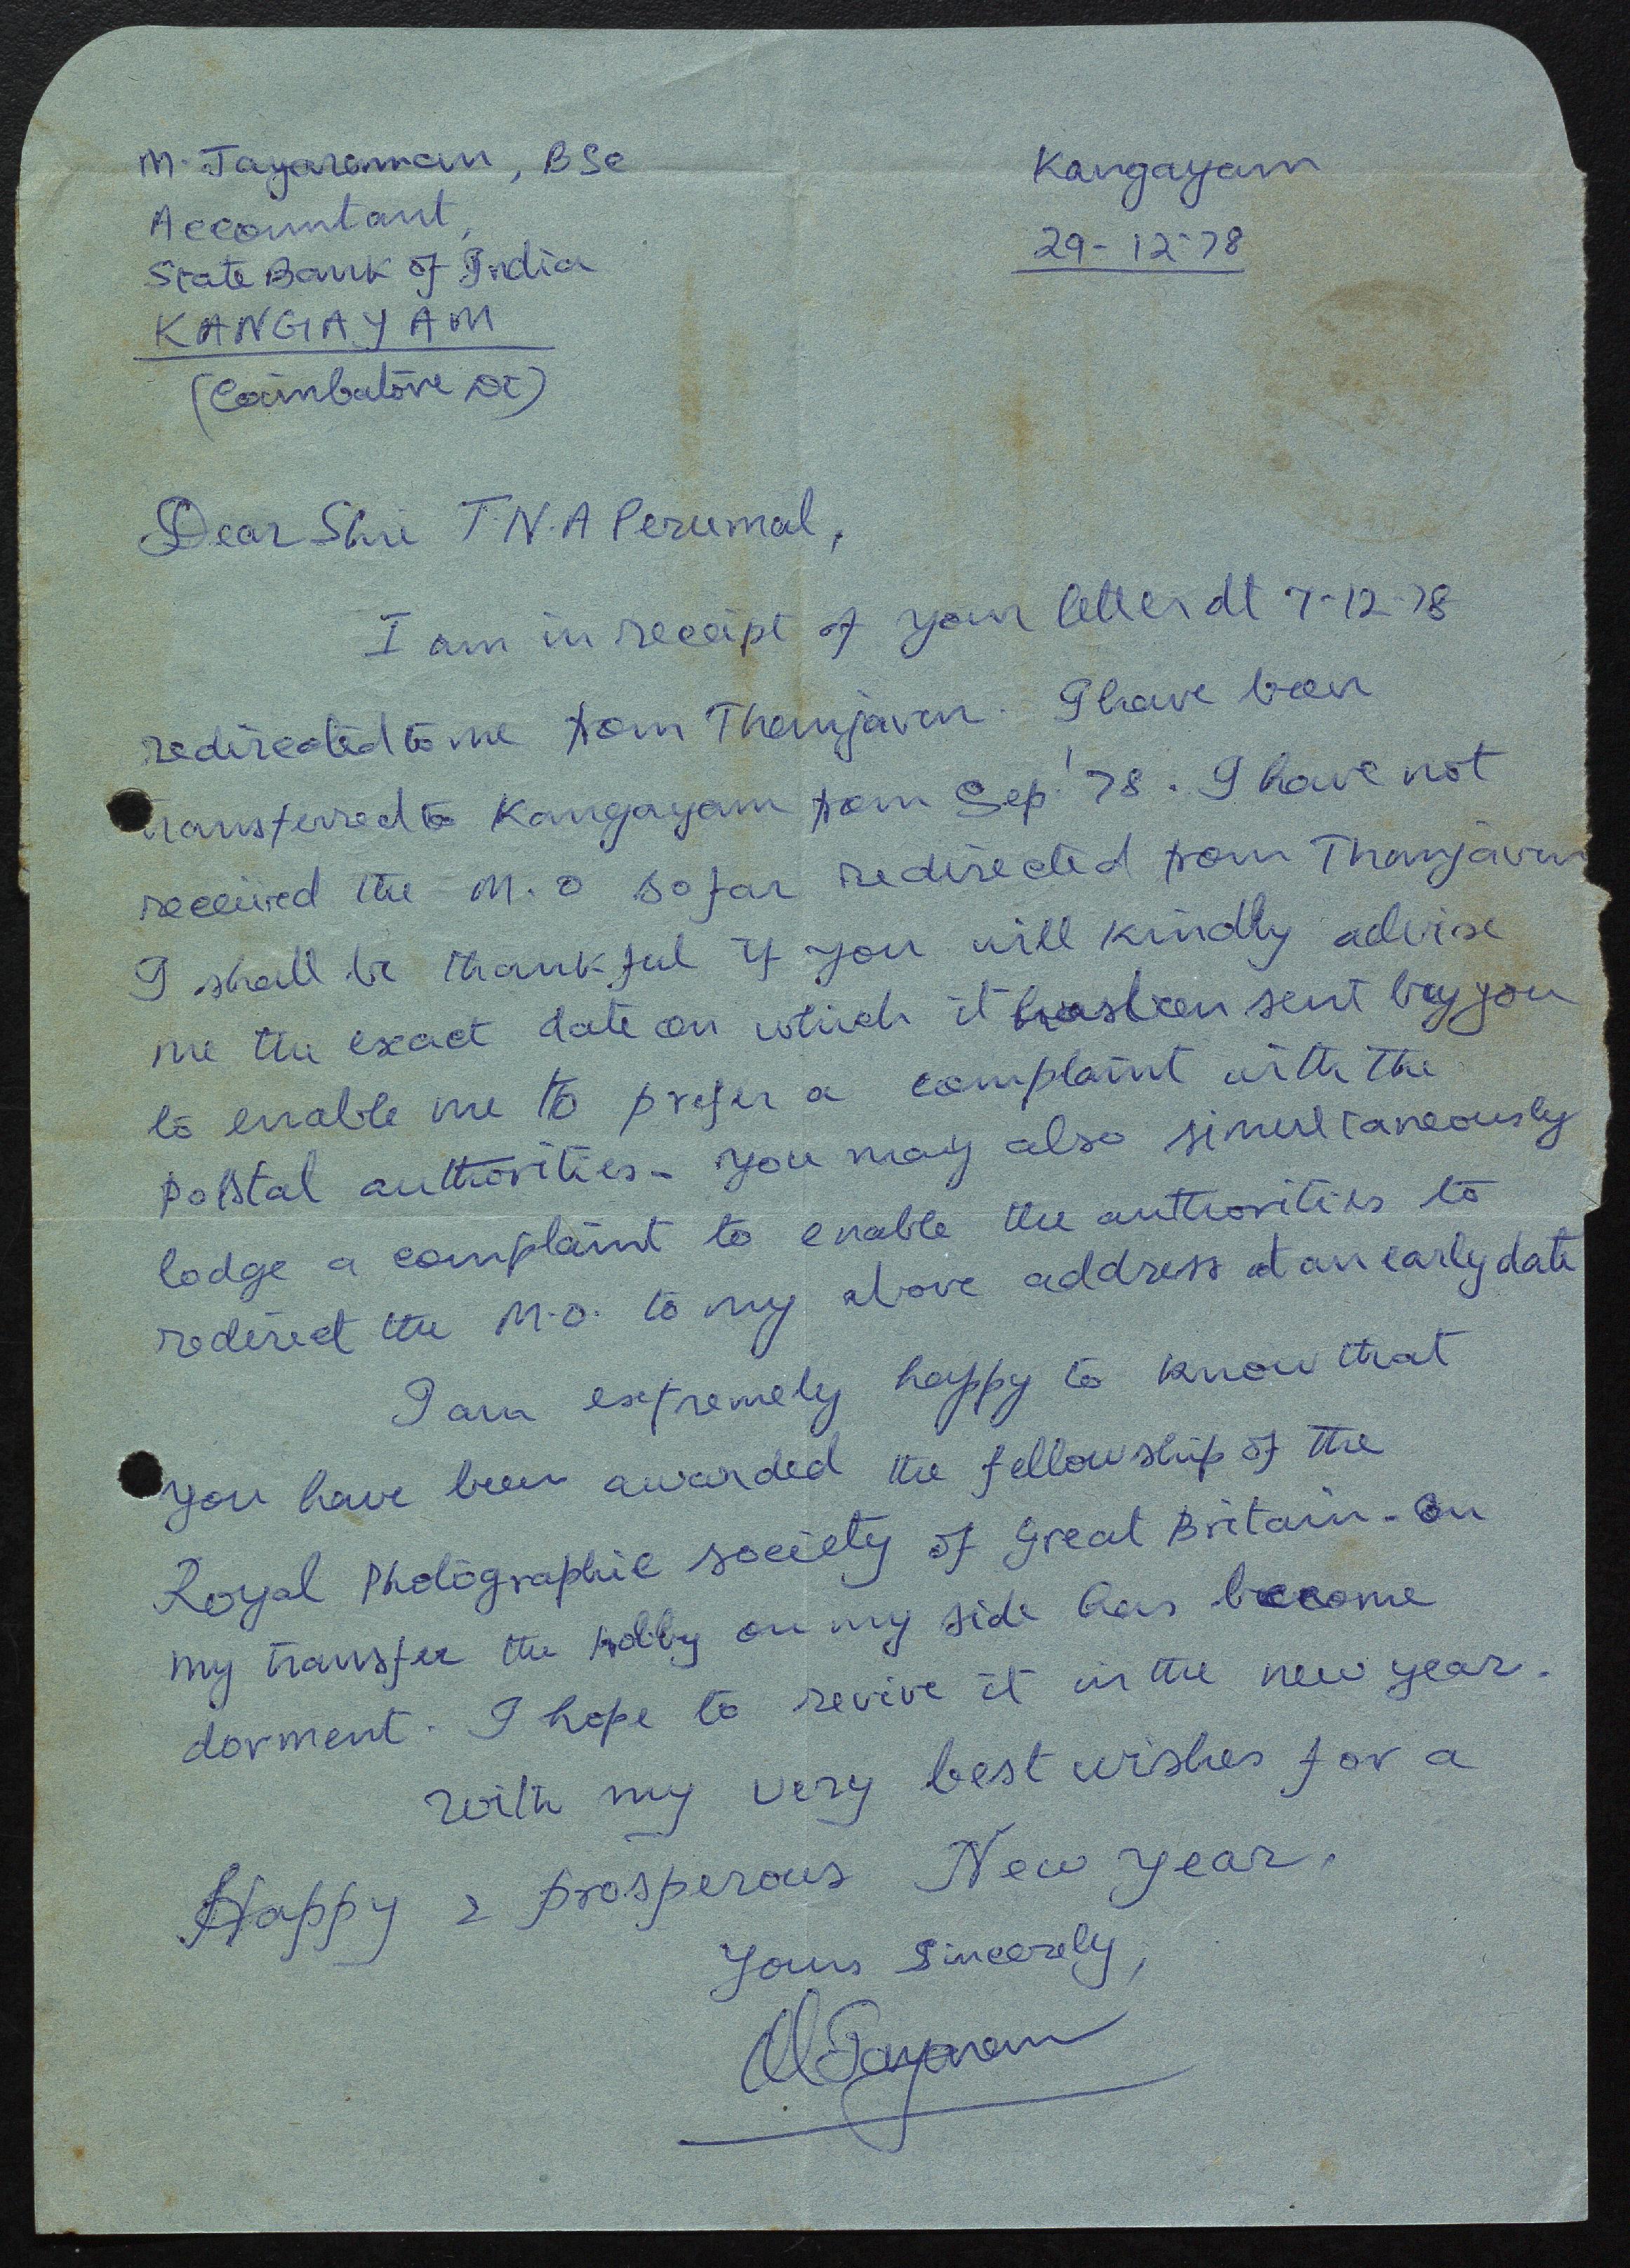 M. Jayaraman, BSc
Accountant,
State Bank of India
KANGAYAM
(Coimbatore Dt)
Kangayam
29-12-78
Dear Shri T.N.A Perumal,
I am in receipt of your letter dt 7-12-78
redirected to me from Thanjavur. I have been
transferred to Kangayam from Sep '78. I have not
received the M.O so far redirected from Thanjavur
I shall be thankful if you will kindly advise
me the exact date on which it has been sent by you
to enable me to prefer a complaint with the
postal authorities. You may also simultaneously
lodge a complaint to enable the authorities to
redirect the M.O. to my above address at an early date
I am extremely happy to know that
you have been awarded the fellowship of the
Royal Photographic society of Great Britain. On
my transfer the hobby on my side has become
dorment. I hope to revive it in the new year.
with my very best wishes for a
Happy & prosperous New Year.
Yours Sincerely,
M Jayaram